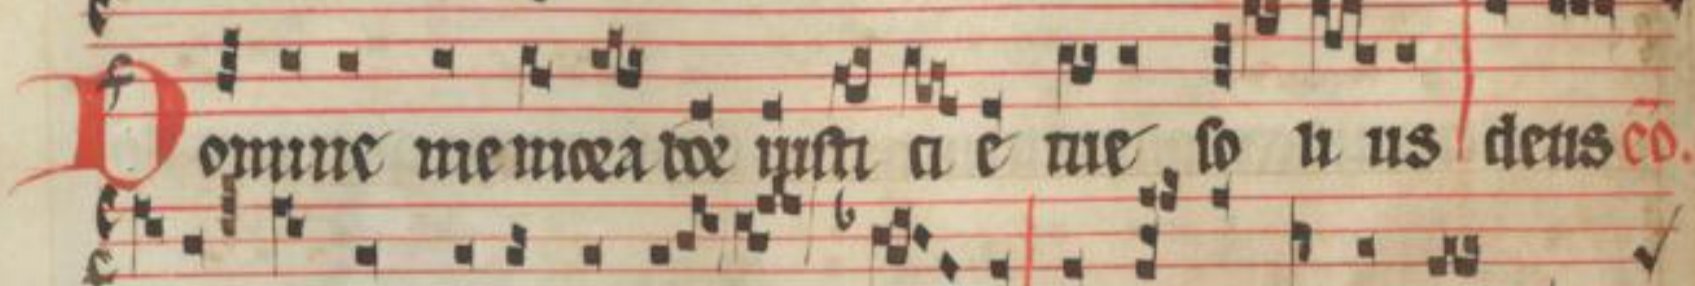 Domine memorabor iusti ci e tue so li us deus eo.